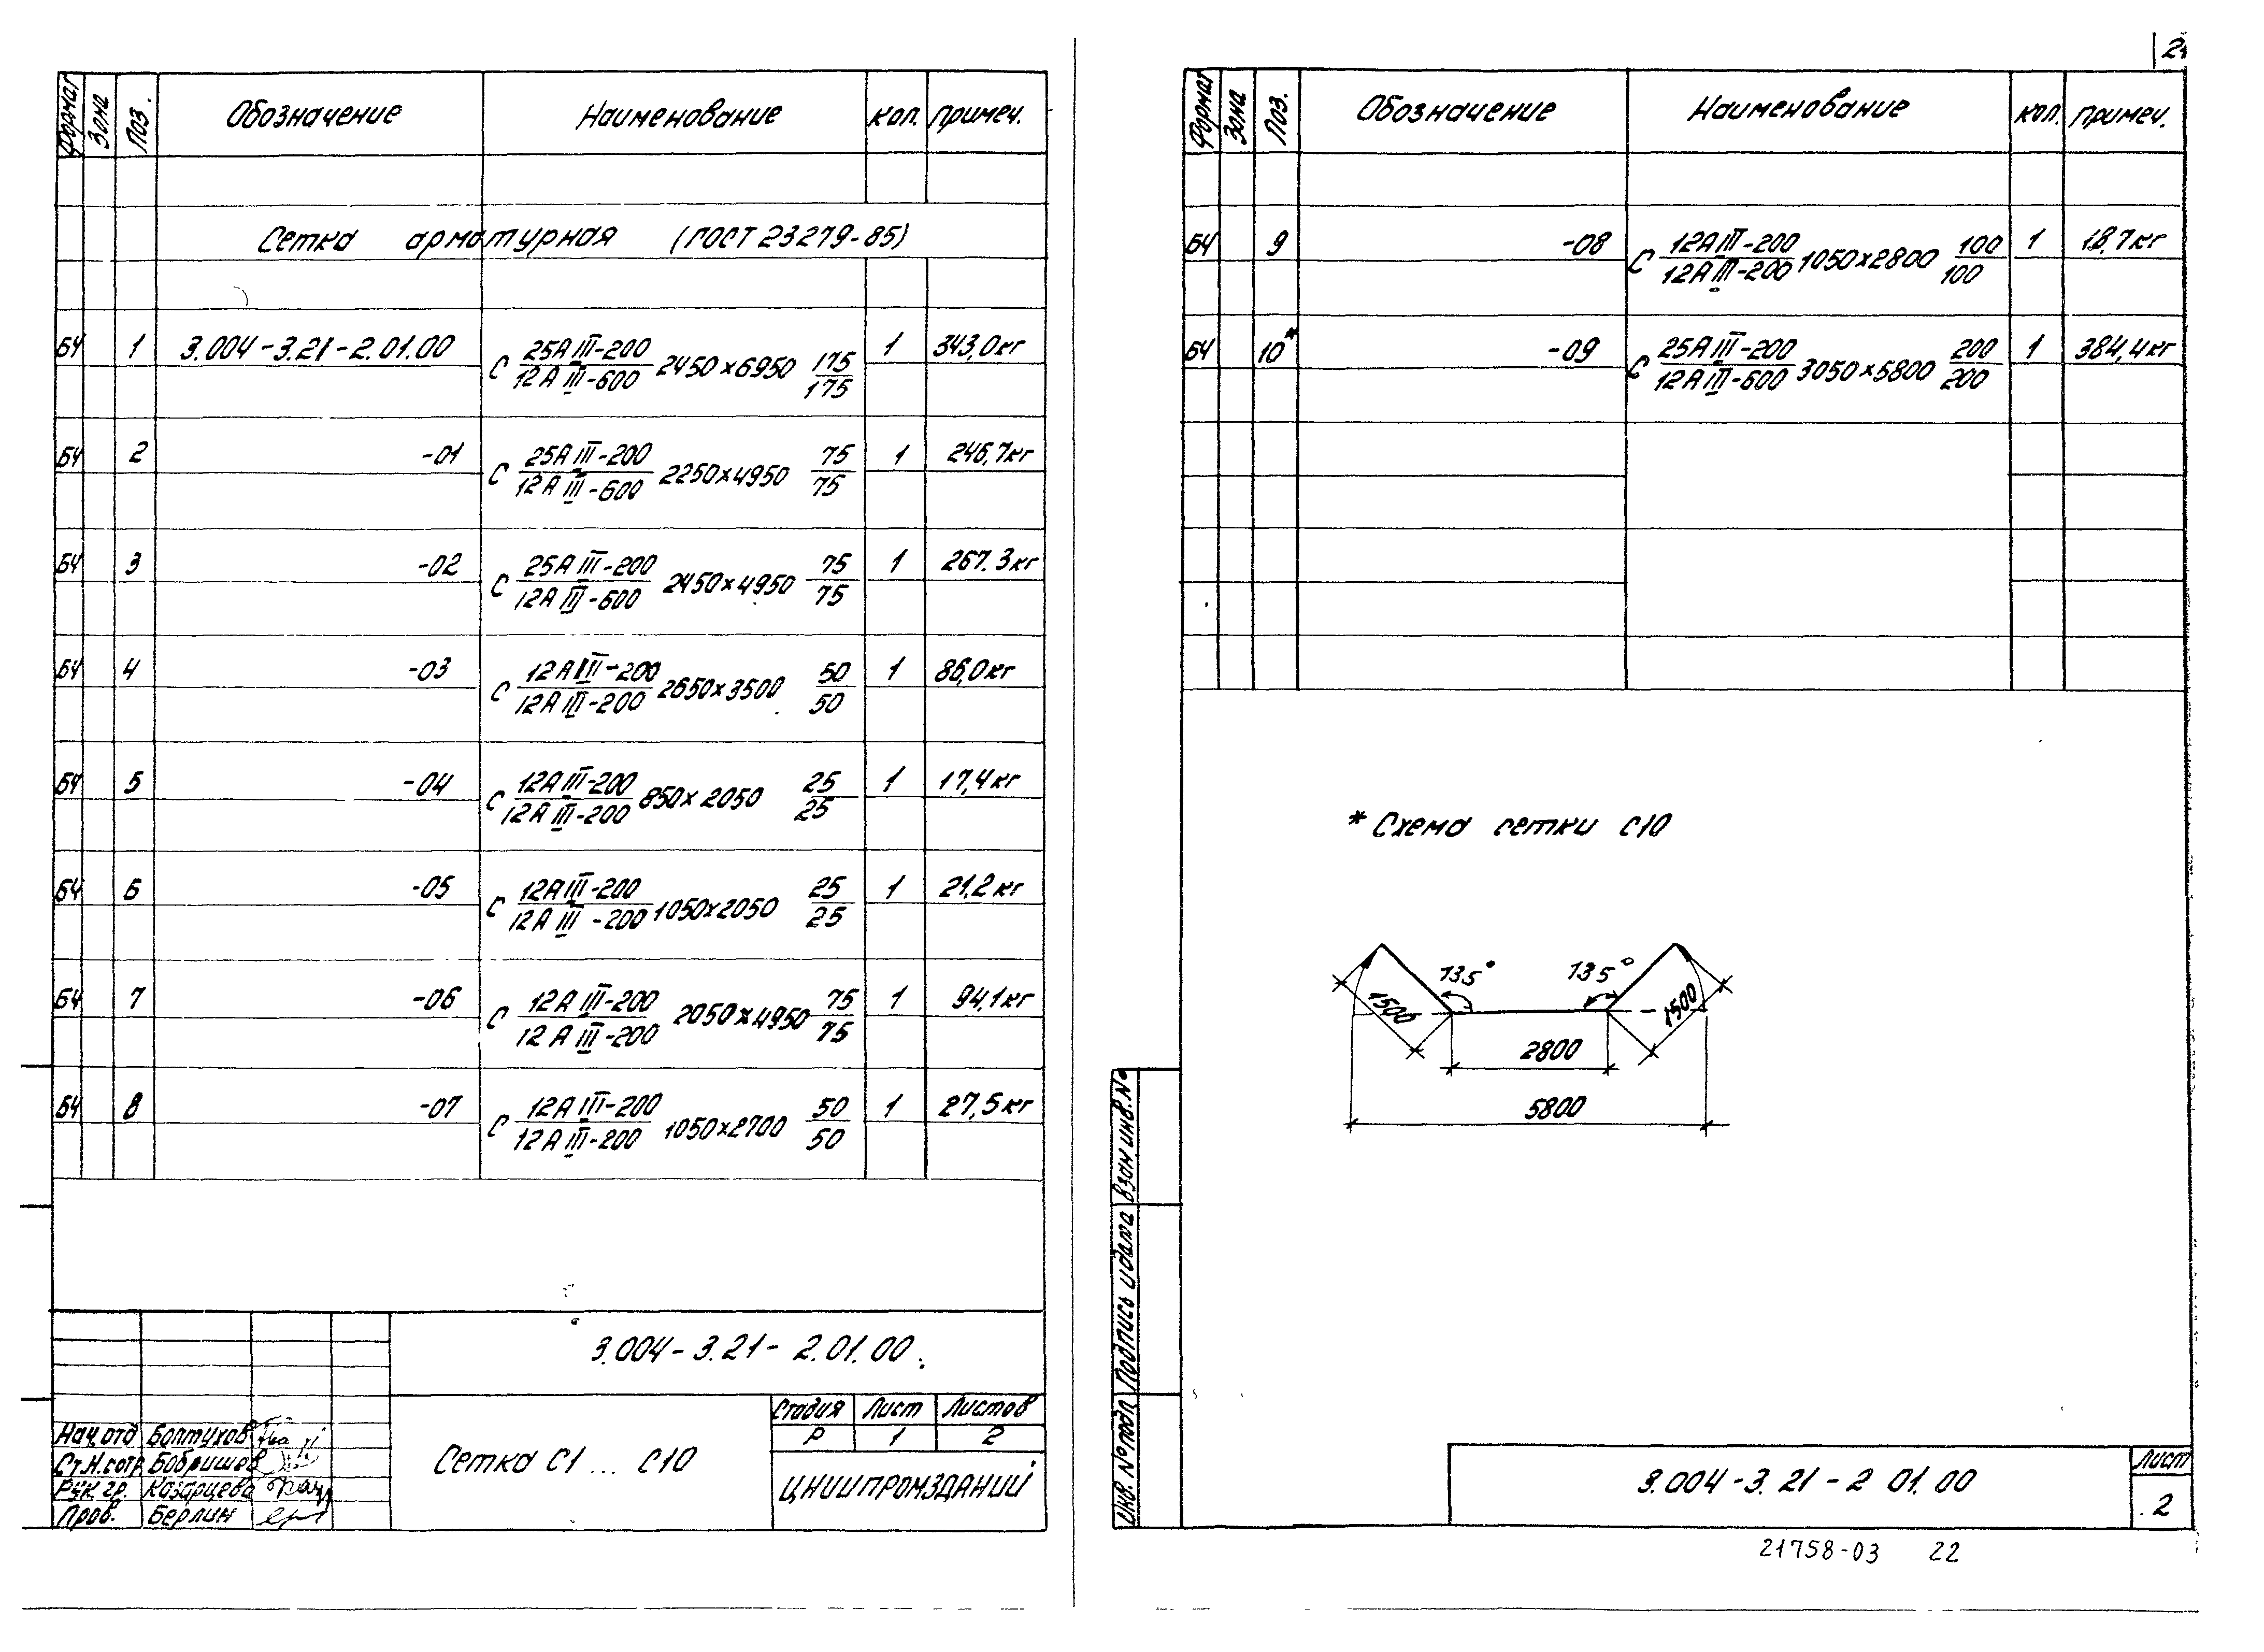 Формат Зона Поз. Обозначение Наименование кол. Примеч.
Сетка арматурная (ГОСТ 23279-85)
БЧ 1 3.004-3.21-2.01.00 С 25А III-200/12А III-600 2450×6950 175/175 1 343,0кг
БЧ 2 -01 С 25А III-200/12А III-600 2250×4950 75/75 1 246,7кг
БЧ 3 -02 С 25А III-200/12А III-600 2450×4950 75/75 1 267.3кг
БЧ 4 -03 С 12А III-200/12А III-200 2650×3500 50/50 1 86,0кг
БЧ 5 -04 С 12А III-200/12А III-200 850×2050 25/25 1 17,4кг
БЧ 6 -05 С 12А III-200/12А III-200 1050×2050 25/25 1 21,2кг
БЧ 7 -06 С 12А III-200/12А III-200 2050×4950 75/75 1 94,1кг
БЧ 8 -07 С 12А III-200/12А III-200 1050×2700 50/50 1 27,5кг
3.004-3.21-2.01.00.
Нач.отд Болтухов
Ст.н.сотр Бобришов
Рук.гр. Казарцева
Пров. Берлин
Сетка С1 ... С10
Стадия Лист Листов
Р 1 2
ЦНИИПРОМЗДАНИЙ
Формат Зона Поз. Обозначение Наименование кол. Примеч.
БЧ 9 -08 С 12А III-200/12А III-200 1050×2800 100/100 1 18,7кг
БЧ 10* -09 С 25А III-200/12А III-600 3050×5800 200/200 1 384,4кг
* Схема сетки С10
135° 135°
1500 1500
2800
5800
Взам инв.№
Подпись и дата
Инв. № подл
3.004-3.21-2 01.00
Лист
2
21758-03 22